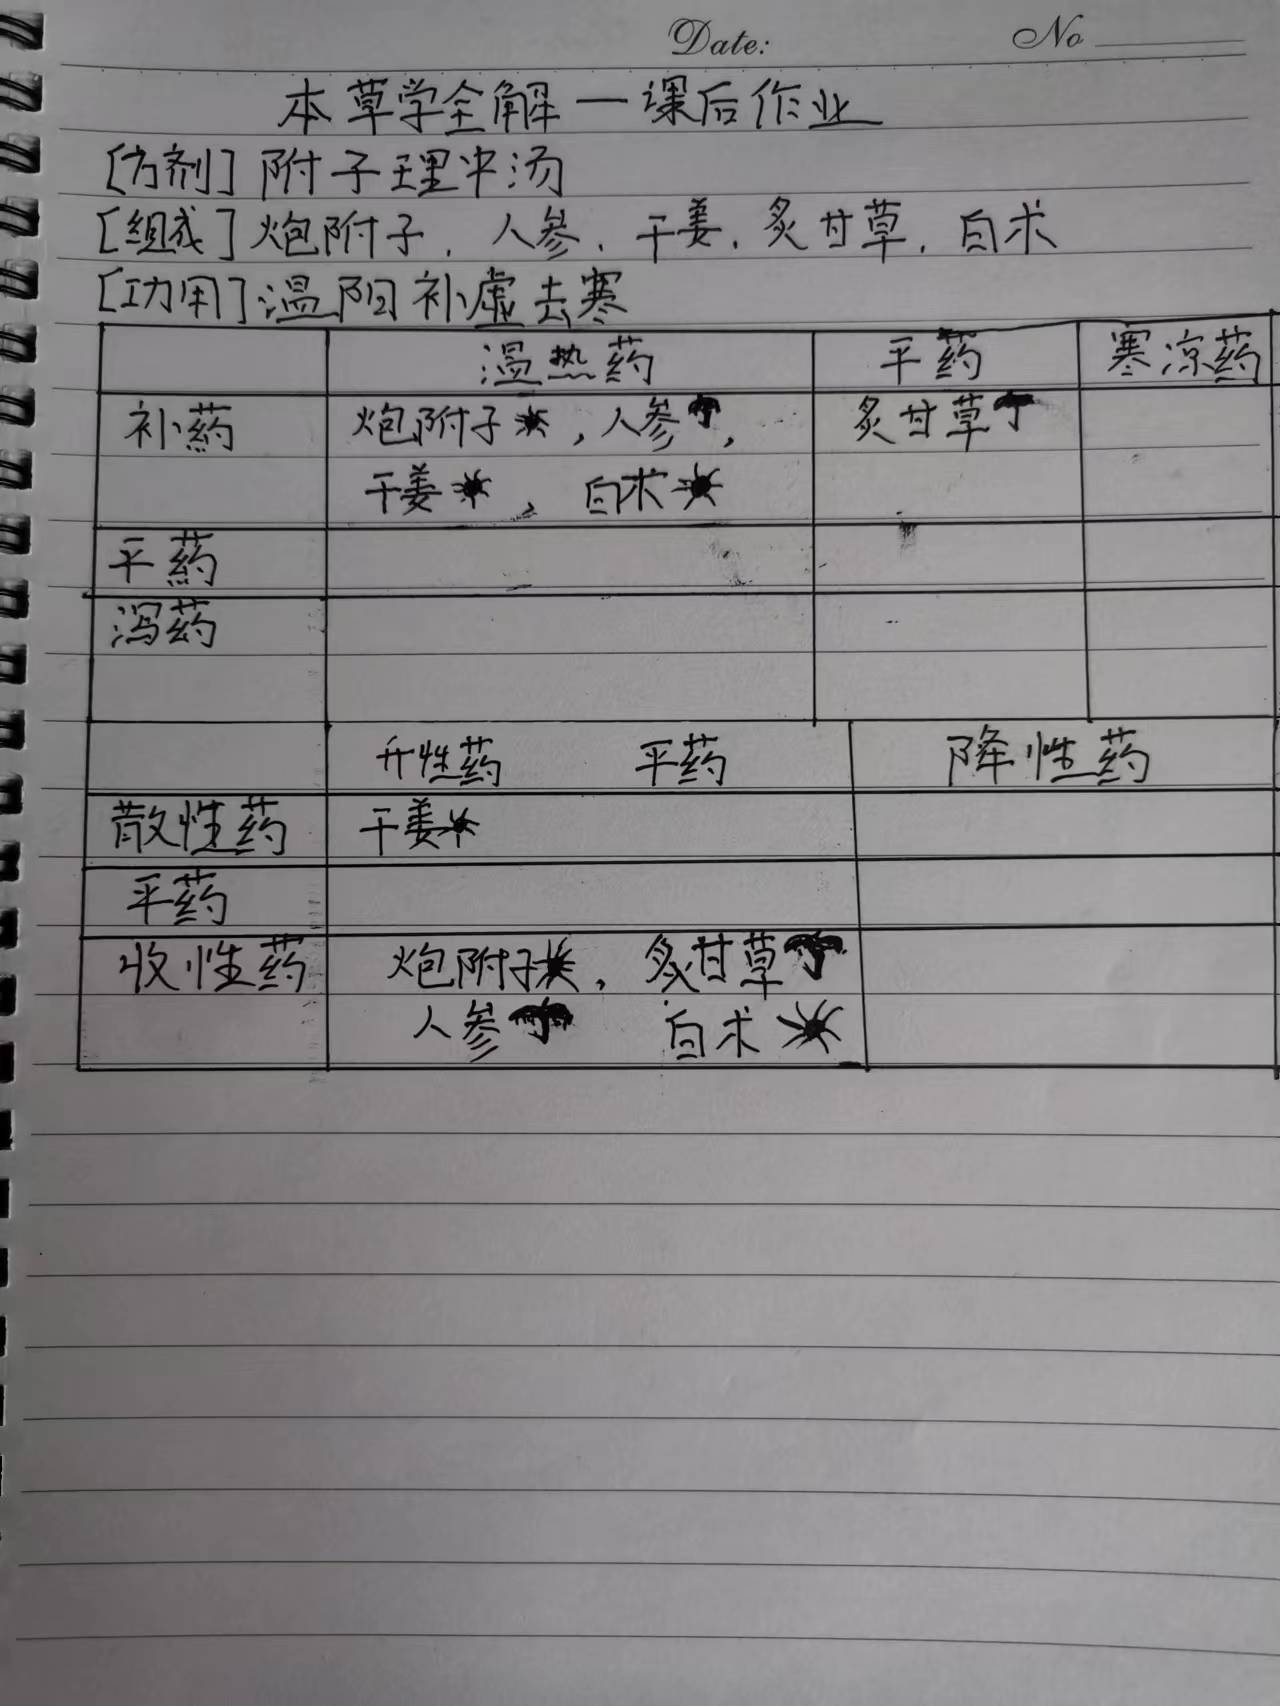 Date: No
本草学全解一课后作业
[方剂] 附子理中汤
[组成] 炮附子, 人参, 干姜, 炙甘草, 白术
[功用] 温阳补虚去寒
温热药 平药 寒凉药
补药 炮附子, 人参, 炙甘草
干姜, 白术
平药
泻药
升性药 平药 降性药
散性药 干姜
平药
收性药 炮附子, 炙甘草
人参 白术